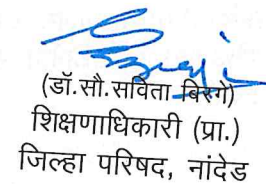 (डॉ.सौ.सविता बिरगे)
शिक्षणाधिकारी (प्रा.)
जिल्हा परिषद, नांदेड